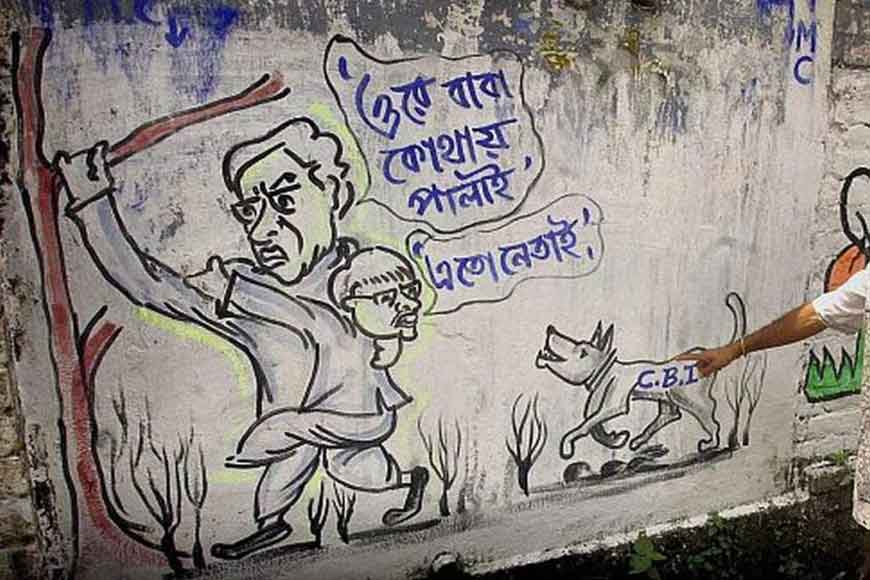 TMC
'ওরে বাবা
কোথায়
পালাই'
'এতো নেতাই!'
C.B.I
MC